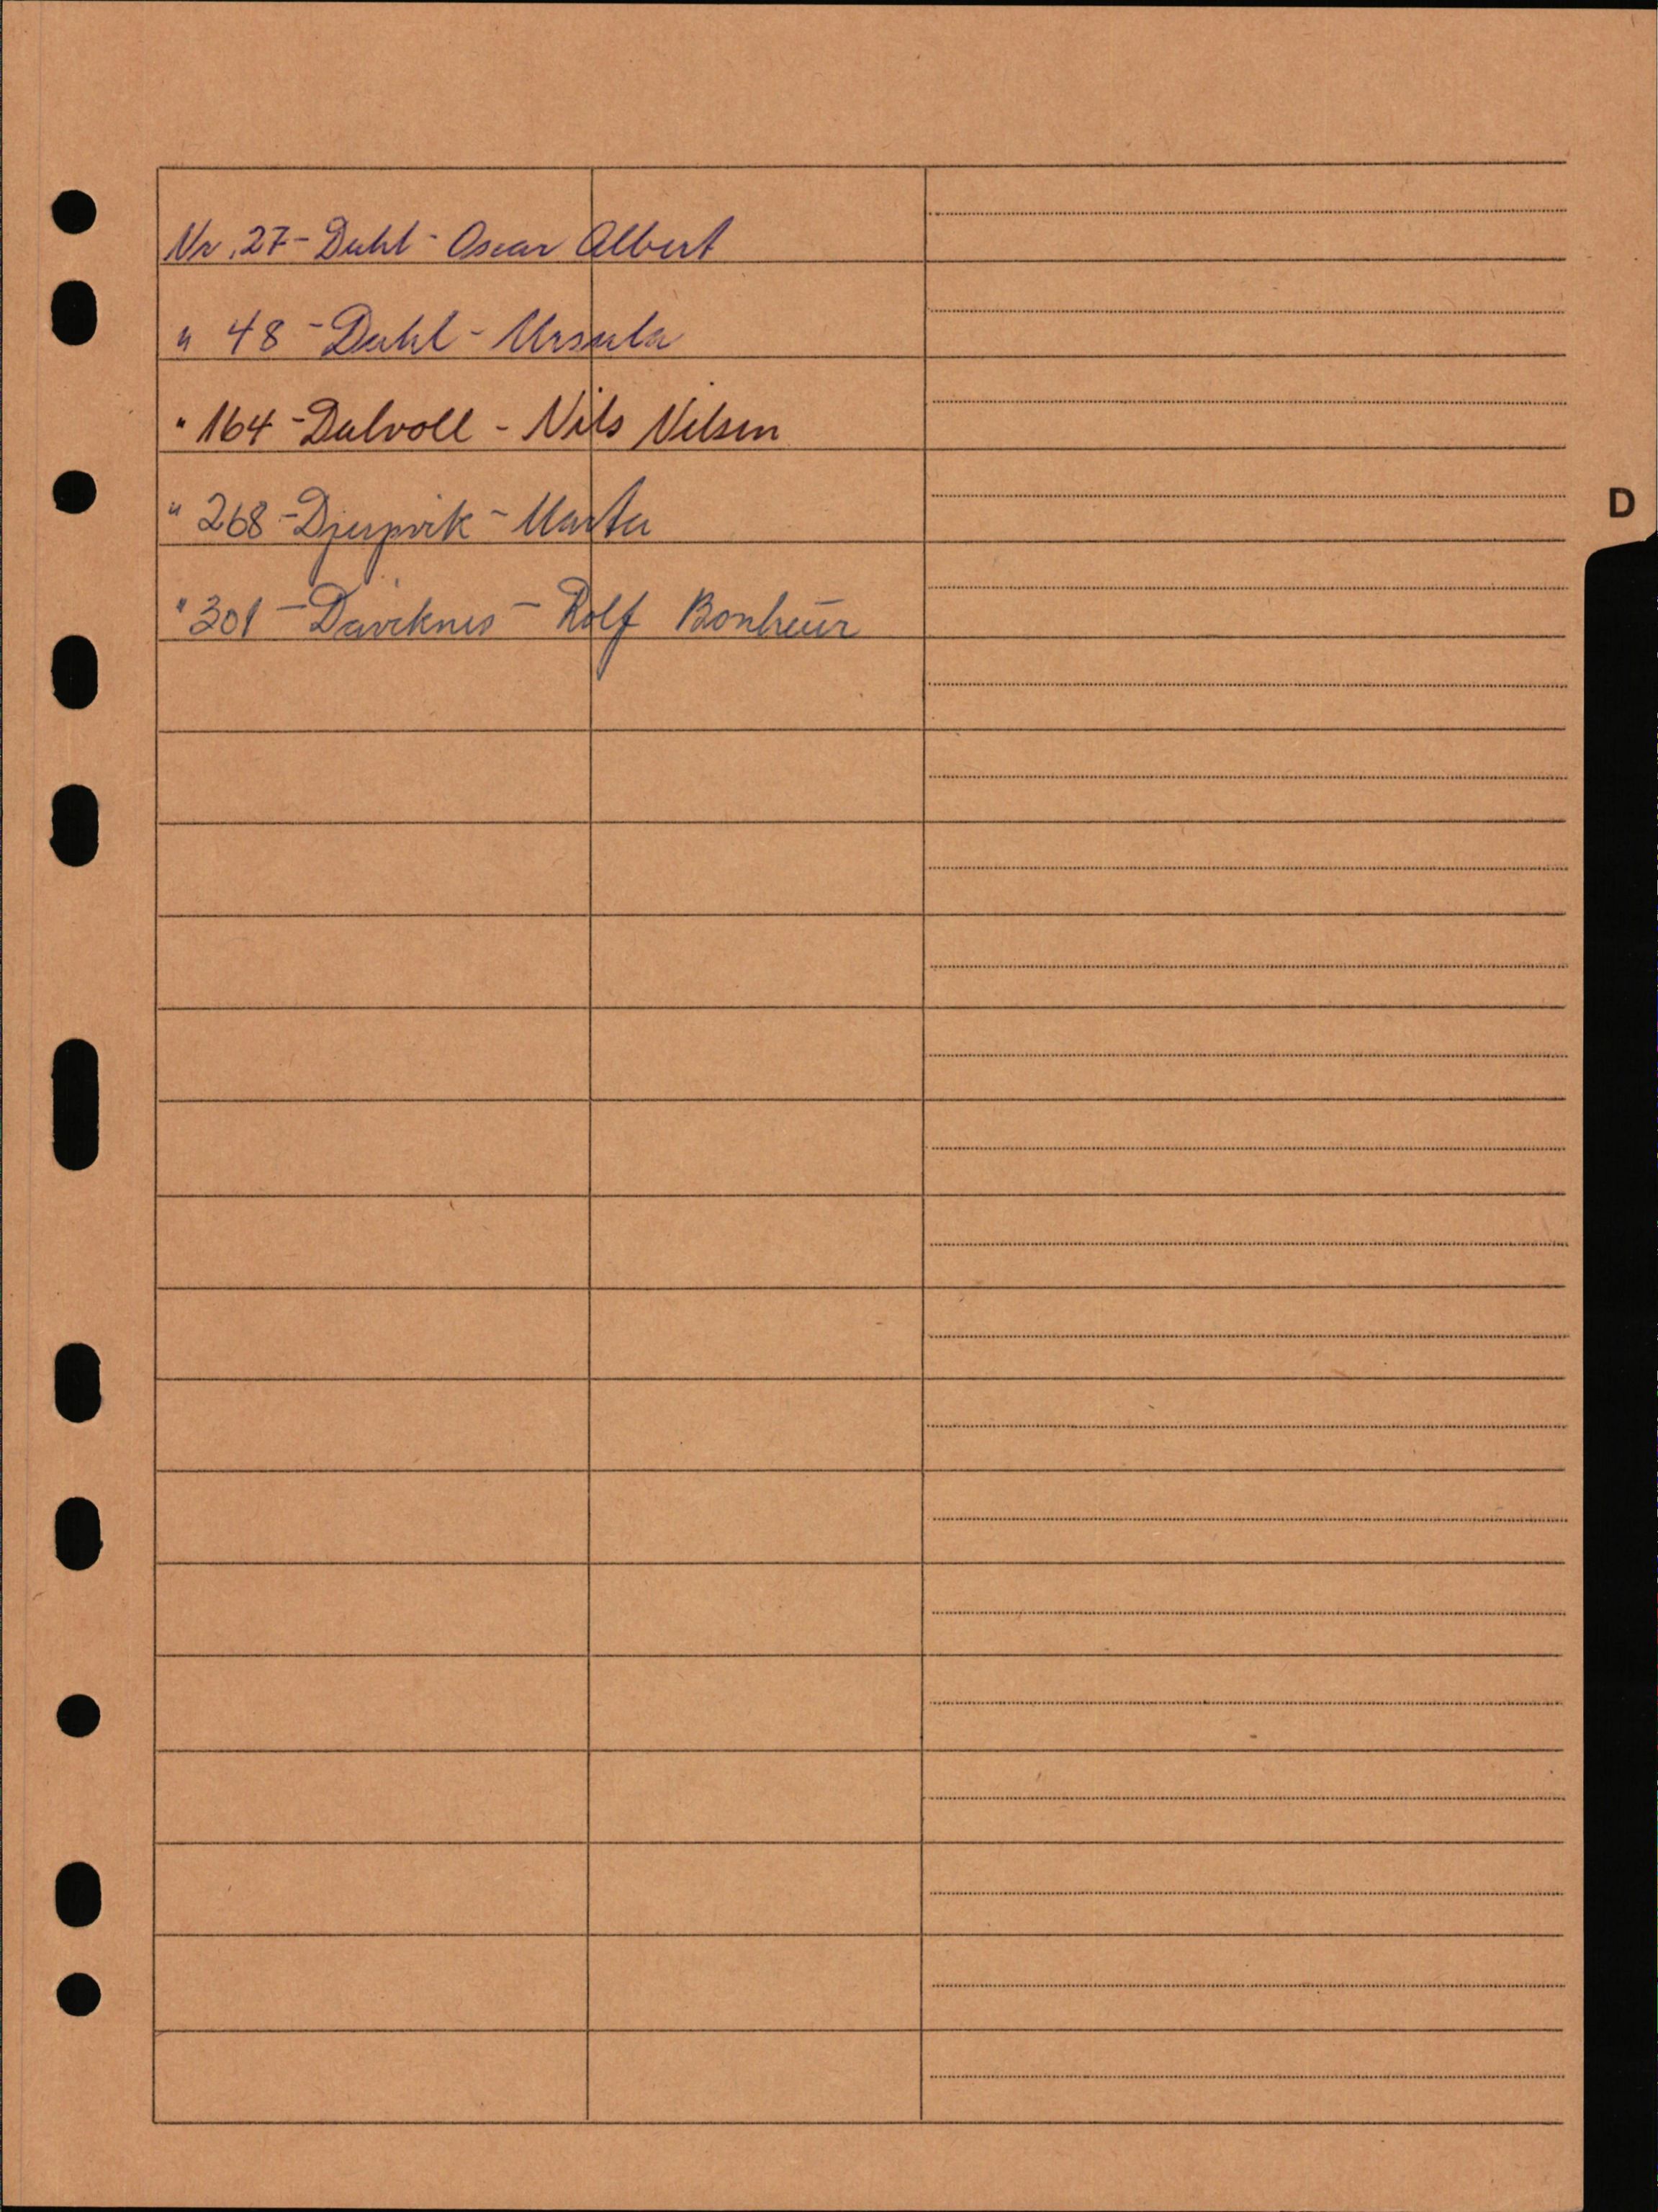 Nr. 27 - Dahl - Oscar Albert
" 48 - Dahl - Ursula
" 164 - Dalvoll - Nils Nilsen
" 268 - Djupvik - Marta
D
" 301 - Rolf Bonheur